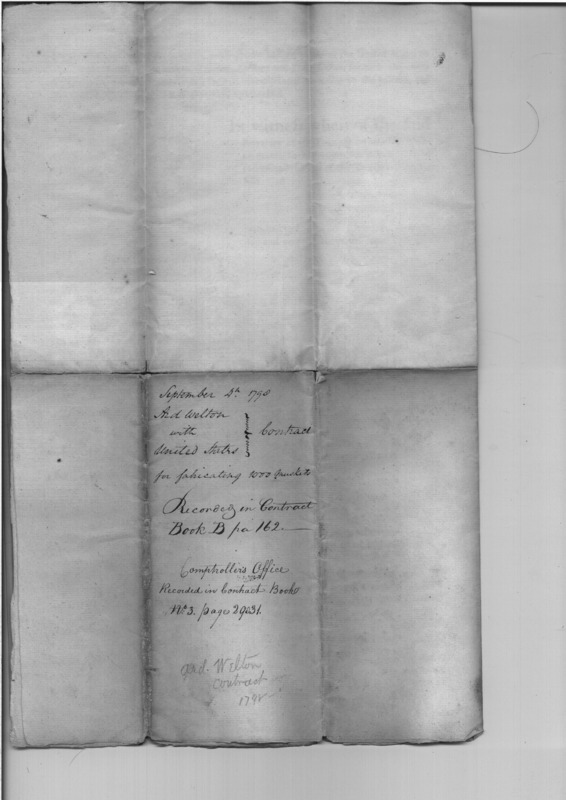 September 4th 1798
Ard Welton
with
United States } Contract
for fabricating 1000 muskets
Recorded in Contract
Book B pa 162.
Comptroller's Office
Recorded in Contract Book
No 3. page
Ard. Welton
contract
1798